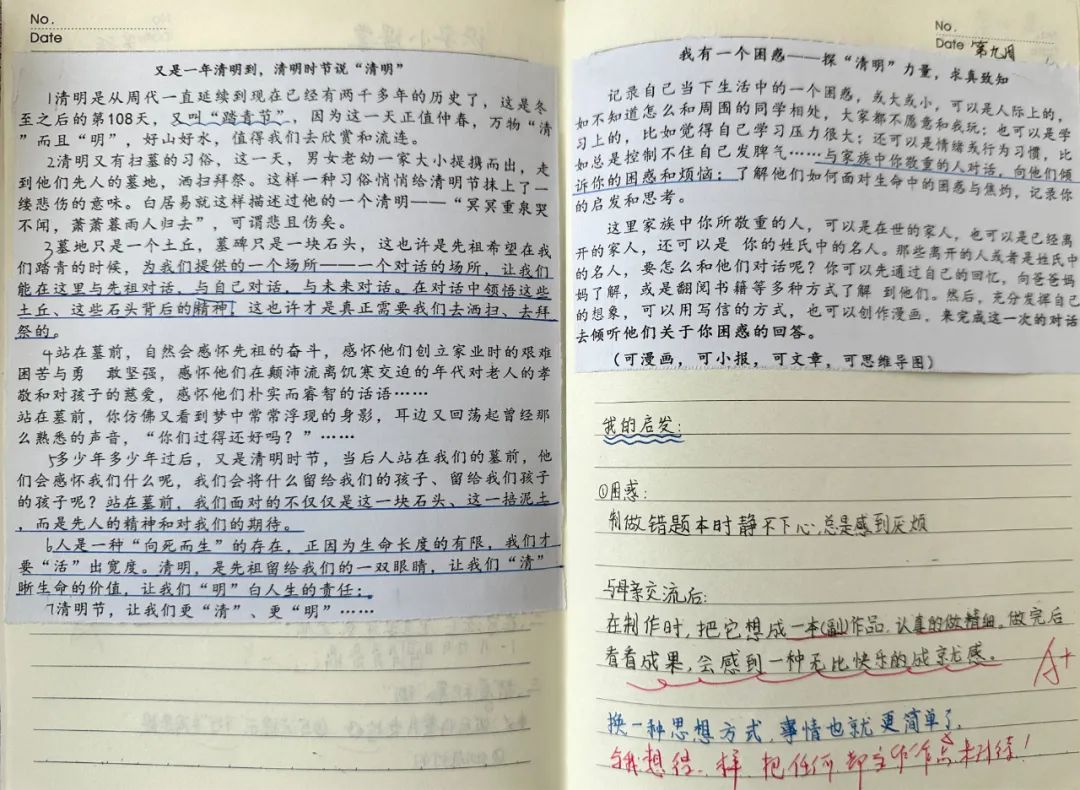 No.
Date
又是一年清明到，清明时节说“清明”
1清明是从周代一直延续到现在已经有两千多年的历史了，这是冬
至之后的第108天，又叫“踏青节”，因为这一天正值仲春，万物“清
”而且“明”，好山好水，值得我们去欣赏和流连。
2清明又有扫墓的习俗，这一天，男女老幼一家大小提携而出，走
到他们先人的墓地，洒扫拜祭。这样一种习俗悄悄给清明节抹上了一
缕悲伤的意味。白居易就这样描述过他的一个清明——“冥冥重泉哭
不闻，萧萧暮雨人归去”，可谓悲且伤矣。
3墓地只是一个土丘，墓碑只是一块石头，这也许是先祖希望在我
们踏青的时候，为我们提供的一个场所——一个对话的场所，让我们
能在这里与先祖对话，与自己对话，与未来对话。在对话中领悟这些
土丘、这些石头背后的精神，这也许才是真正需要我们去洒扫、去拜
祭的。
4站在墓前，自然会感怀先祖的奋斗，感怀他们创立家业时的艰难
困苦与勇 敢坚强，感怀他们在颠沛流离饥寒交迫的年代对老人的孝
敬和对孩子的慈爱，感怀他们朴实而睿智的话语……
站在墓前，你仿佛又看到梦中常常浮现的身影，耳边又回荡起曾经那
么熟悉的声音，“你们过得还好吗？”……
5多少年多少年过后，又是清明时节，当后人站在我们的墓前，他
们会感怀我们什么呢，我们会将什么留给我们的孩子、留给我们孩子
的孩子呢？站在墓前，我们面对的不仅仅是这一块石头、这一掊泥土
，而是先人的精神和对我们的期待。
6人是一种“向死而生”的存在，正因为生命长度的有限，我们才
要“活”出宽度。清明，是先祖留给我们的一双眼睛，让我们“清”
晰生命的价值，让我们“明”白人生的责任；
7清明节，让我们更“清”、更“明”……
No.
Date 第九周
我有一个困惑——探“清明”力量，求真致知
记录自己当下生活中的一个困惑，或大或小，可以是人际上的，
如不知道怎么和周围的同学相处，大家都不愿意和我玩；也可以是学
习上的，比如觉得自己学习压力很大；还可以是情绪或行为习惯，比
如总是控制不住自己发脾气……与家族中你敬重的人对话，向他们倾
诉你的困惑和烦恼；了解他们如何面对生命中的困惑与焦灼，记录你
的启发和思考。
这里家族中你所敬重的人，可以是在世的家人，也可以是已经离
开的家人，还可以是 你的姓氏中的名人。那些离开的人或者是姓氏中
的名人，要怎么和他们对话呢？你可以先通过自己的回忆，向爸爸妈
妈了解，或是翻阅书籍等多种方式了解 到他们。然后，充分发挥自己
的想象，可以用写信的方式，也可以创作漫画，来完成这一次的对话
去倾听他们关于你困惑的回答。
（可漫画，可小报，可文章，可思维导图）
我的启发：
①困惑：
制做错题本时静不下心，总是感到厌烦
与母亲交流后：
在制作时，把它想成一本(副)作品，认真的做精细。做完后
看看成果，会感到一种无比快乐的成就感。
A+
换一种思想方式，事情也就更简单了。
与我想得一样，把任何都当作作品来对待！